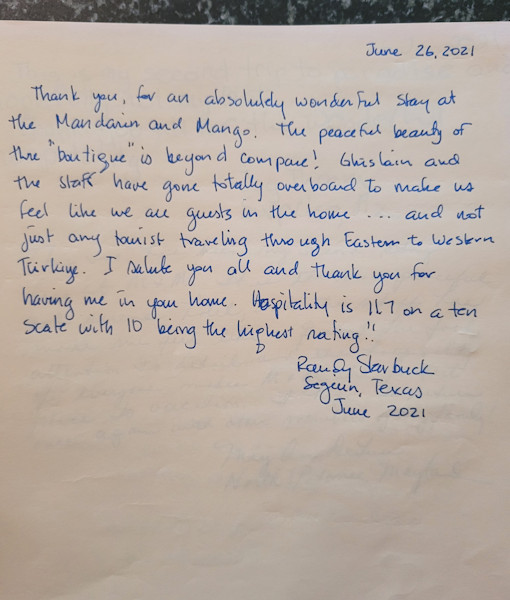 June 26, 2021
Thank you, for an absolutely wonderful stay at
the Mandarin and Mango. The peaceful beauty of
thre "boutique" is beyond compare! Ghislain and
the staff have gone totally overboard to make us
feel like we are guests in the home ... and not
just any tourist traveling through Eastern to Western
Türkiye. I salute you all and thank you for
having me in your home. Hospitality is 117 on a ten
scale with 10 being the highest rating!!
Randy Starbuck
Seguin, Texas
June 2021